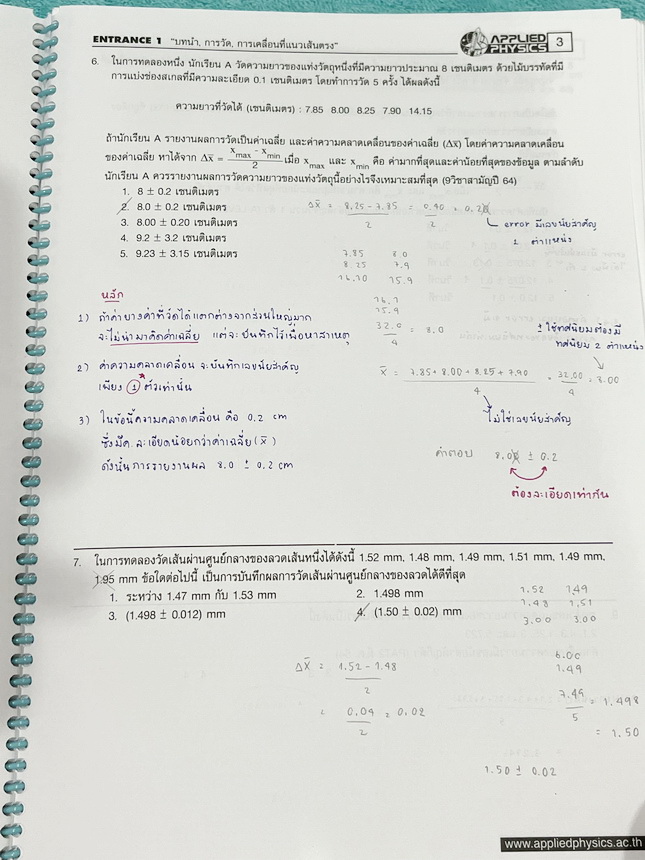 ENTRANCE 1 "บทนำ, การวัด, การเคลื่อนที่แนวเส้นตรง"
APPLIED PHYSICS 3
6. ในการทดลองหนึ่ง นักเรียน A วัดความยาวของแท่งวัตถุหนึ่งที่มีความยาวประมาณ 8 เซนติเมตร ด้วยไม้บรรทัดที่มี
การแบ่งช่องสเกลที่มีความละเอียด 0.1 เซนติเมตร โดยทำการวัด 5 ครั้ง ได้ผลดังนี้
ความยาวที่วัดได้ (เซนติเมตร) : 7.85 8.00 8.25 7.90 14.15
ถ้านักเรียน A รายงานผลการวัดเป็นค่าเฉลี่ย และค่าความคลาดเคลื่อนของค่าเฉลี่ย (Δx̄) โดยค่าความคลาดเคลื่อน
ของค่าเฉลี่ย หาได้จาก Δx̄ = (x max - x min)/2 เมื่อ x max และ x min คือ ค่ามากที่สุดและค่าน้อยที่สุดของข้อมูล ตามลำดับ
นักเรียน A ควรรายงานผลการวัดความยาวของแท่งวัตถุนี้อย่างไรจึงเหมาะสมที่สุด (9วิชาสามัญปี 64)
1. 8 ± 0.2 เซนติเมตร
2. 8.0 ± 0.2 เซนติเมตร
3. 8.00 ± 0.20 เซนติเมตร
4. 9.2 ± 3.2 เซนติเมตร
5. 9.23 ± 3.15 เซนติเมตร
Δx̄ = (8.25 - 7.85)/2 = 0.40/2 = 0.20
error มีเลขนัยสำคัญ
1 ตำแหน่ง
7.85 8.0
8.25 7.9
16.10 15.9
16.1
15.9
32.0/4 = 8.0
หลัก
1) ถ้าค่าบางค่าที่วัดได้แตกต่างจากส่วนใหญ่มาก
จะไม่นำมาคิดค่าเฉลี่ย แต่จะบันทึกไว้เนื้อหาสาเหตุ
2) ค่าความคลาดเคลื่อน จะบันทึกเลขนัยสำคัญ
เพียง 1 ตัวเท่านั้น
3) ในข้อนี้ความคลาดเคลื่อน คือ 0.2 cm
ซึ่งมีค. ละเอียดน้อยกว่าค่าเฉลี่ย (x̄)
ดังนั้นการรายงานผล 8.0 ± 0.2 cm
± ใช้ทศนิยมต้องมี
ทศนิยม 2 ตำแหน่ง
x̄ = (7.85 + 8.00 + 8.25 + 7.90)/4 = 32.00/4 = 8.00
ไม่ใช่เลขนัยสำคัญ
คำตอบ 8.00 ± 0.2
ต้องละเอียดเท่ากัน
7. ในการทดลองวัดเส้นผ่านศูนย์กลางของลวดเส้นหนึ่งได้ดังนี้ 1.52 mm, 1.48 mm, 1.49 mm, 1.51 mm, 1.49 mm,
1.95 mm ข้อใดต่อไปนี้ เป็นการบันทึกผลการวัดเส้นผ่านศูนย์กลางของลวดได้ดีที่สุด
1. ระหว่าง 1.47 mm กับ 1.53 mm 2. 1.498 mm
3. (1.498 ± 0.012) mm 4. (1.50 ± 0.02) mm
1.52 1.49
1.48 1.51
3.00 3.00
6.00
1.49
7.49/5 = 1.498
= 1.50
Δx̄ = (1.52 - 1.48)/2
= 0.04/2 = 0.02
1.50 ± 0.02
www.appliedphysics.ac.th